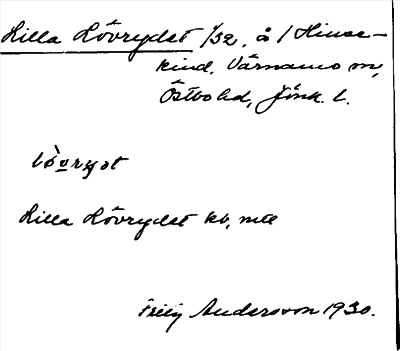 Lilla Lövrydet 1/32, å 1 Hinse-
kind, Värnamo m,
Östbo hd, Jönk. l.
lö̀vryət
Lilla Lövrydet kb, mtl
Filip Andersson 1930.